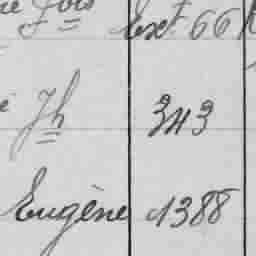 Fois Ext 66
Jh 343
Eugène 1388